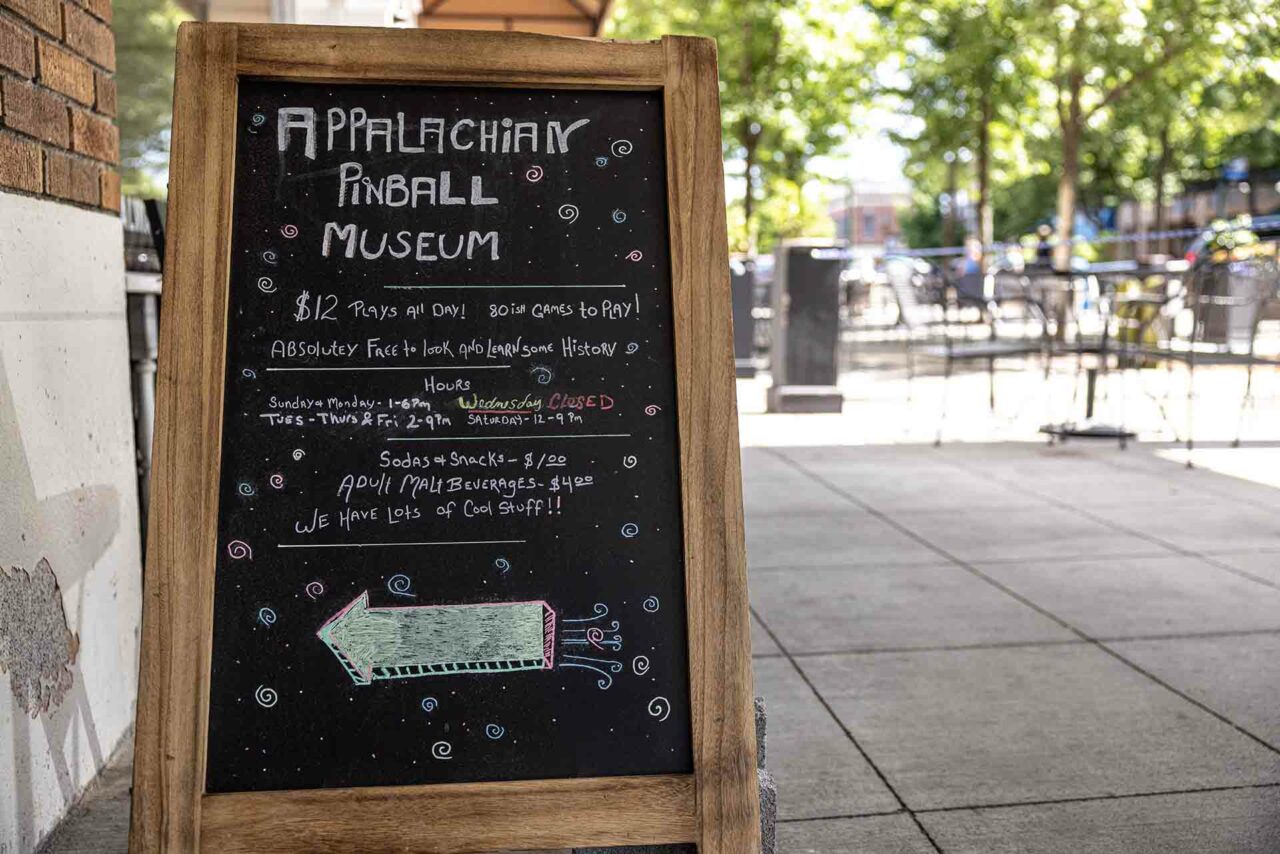 APPALACHIAN
PINBALL
MUSEUM
$12 PLAYS All DAY! 80ish GAMES to PlAY!
ABSOLUTEY FREE to looK AND LEARN some HistoRY
HOURS
SundAy & Monday - 1-6 Pm Wednesday CLOSED
TUES - THURS & FRi 2-9 Pm SATURDAY - 12-9 Pm
SodAS & SnAcks - $1.00
ADUlt MAlt BEVERAGES - $4.00
WE HAVE LOTS of Cool Stuff!!